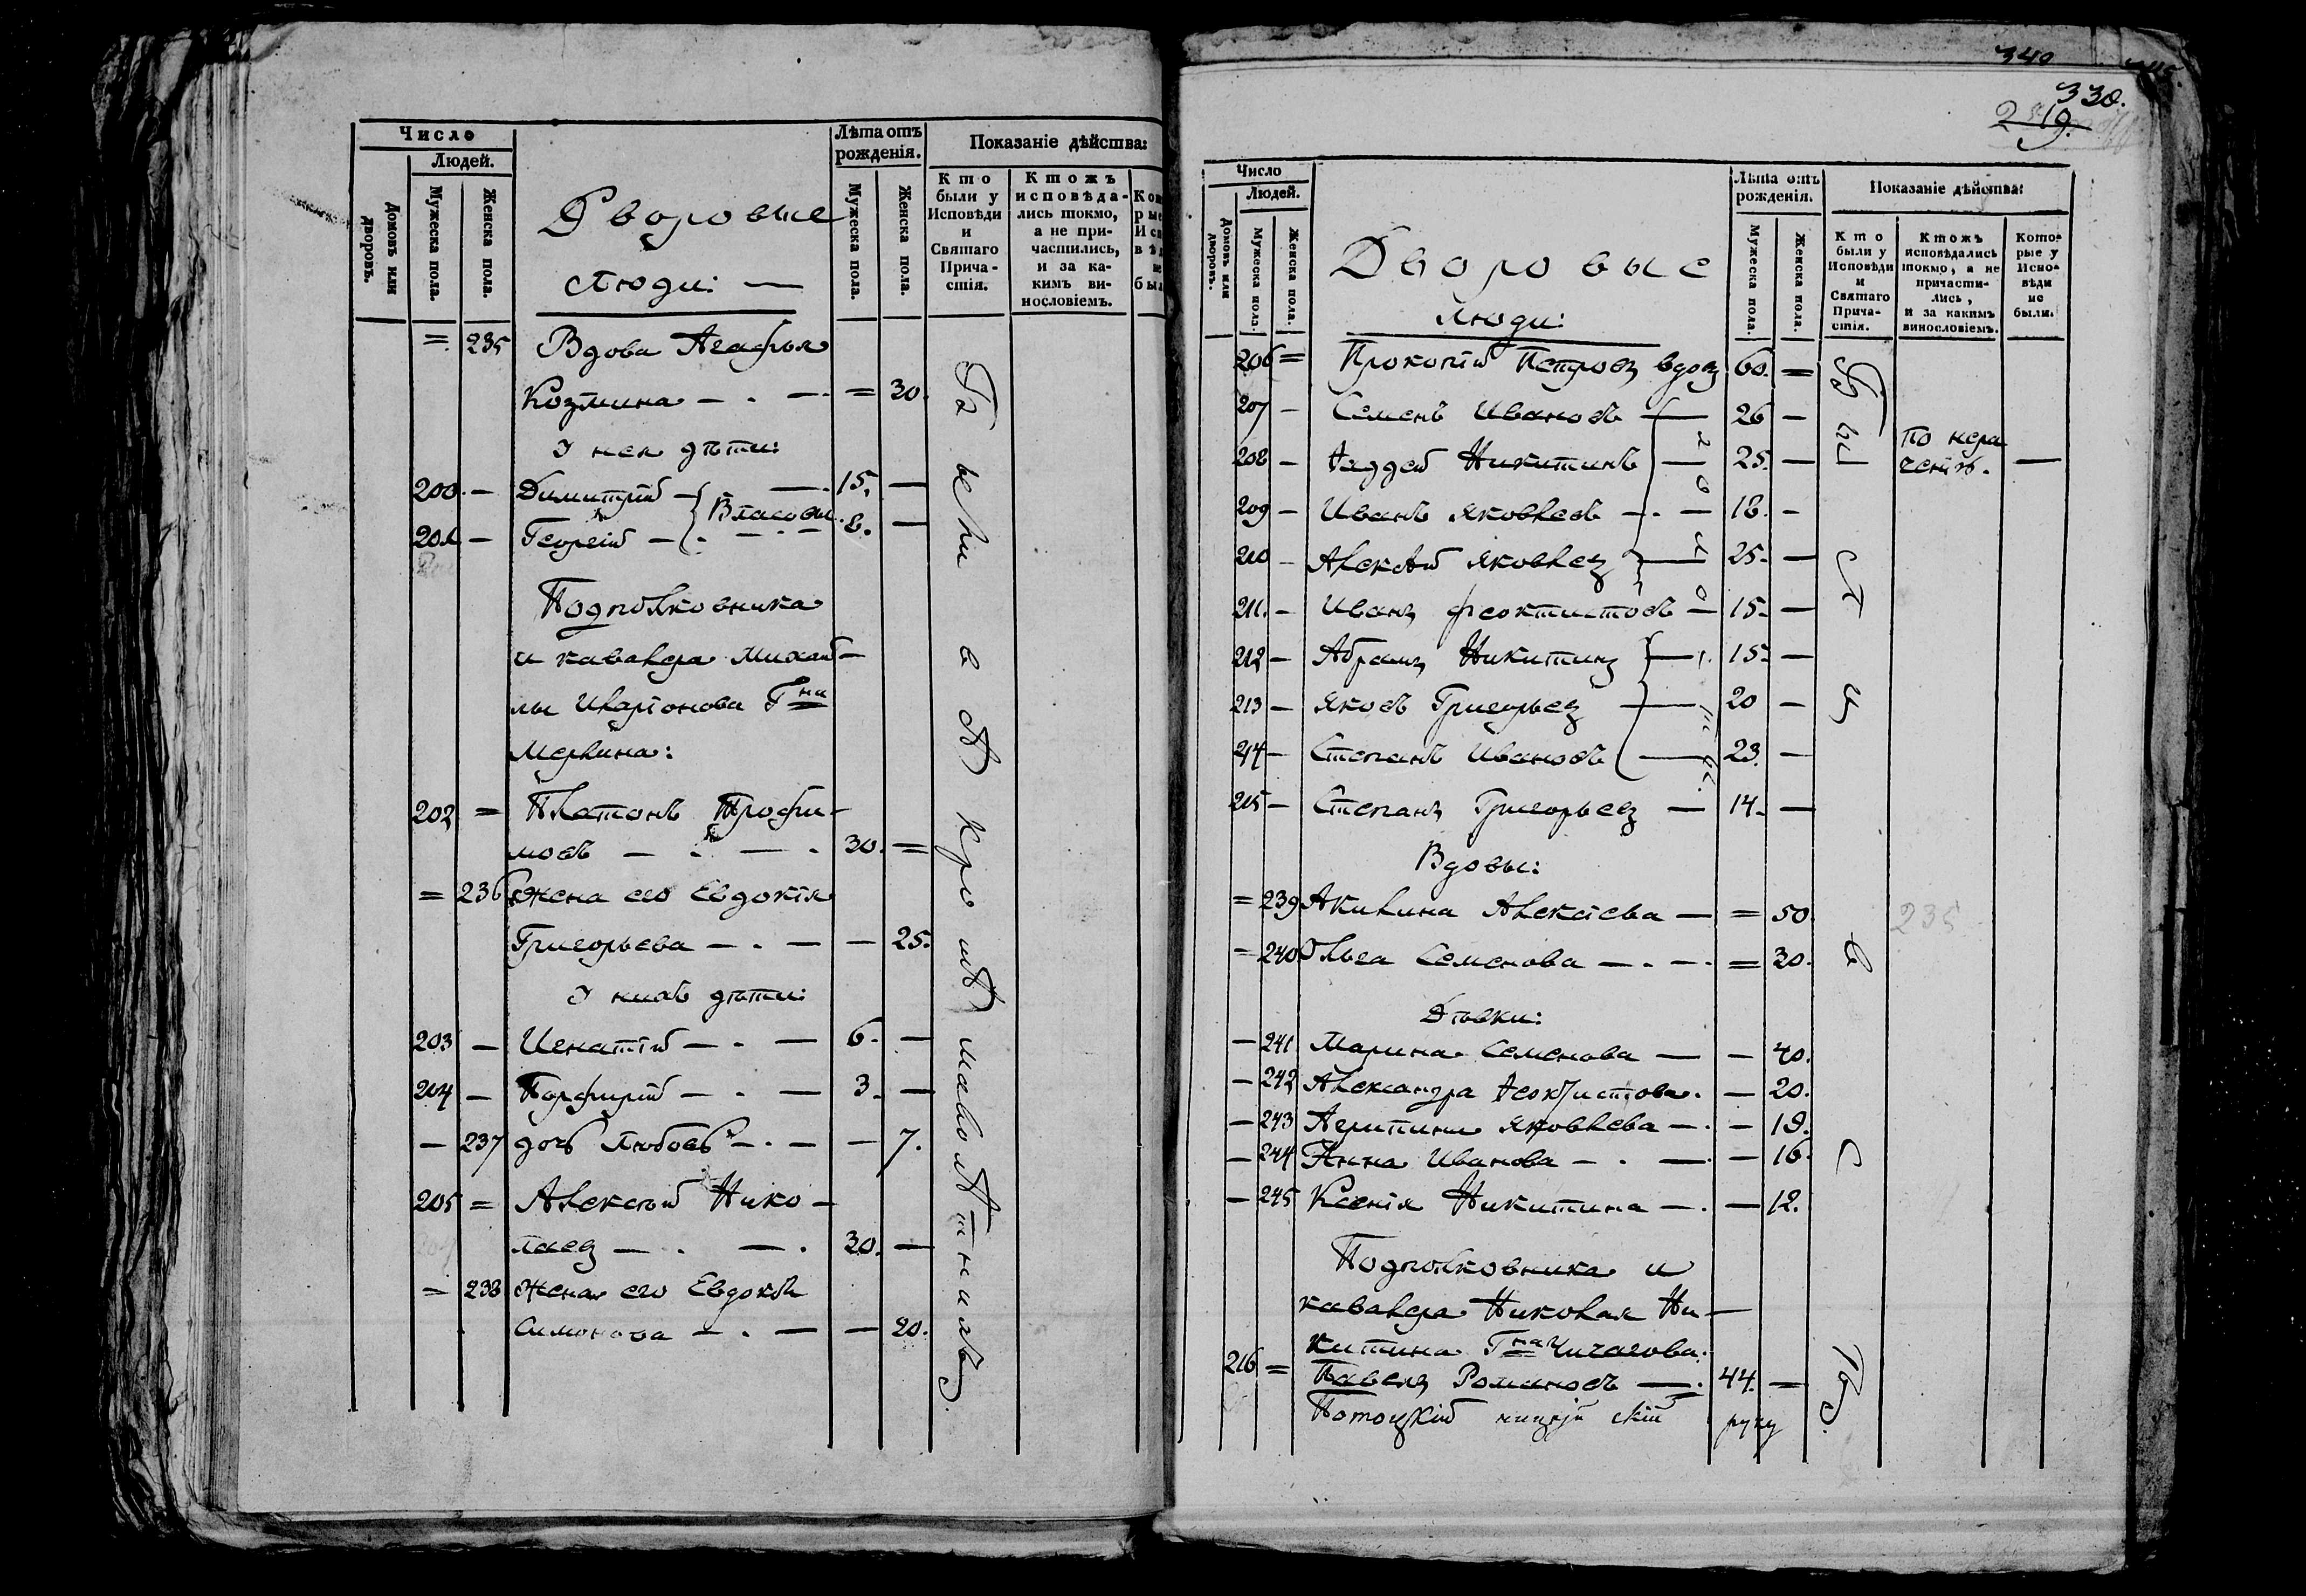 Число
Людей.
Домовъ или дворовъ.
Мужеска пола.
Женска пола.
Дворовые
Люди: —
Лѣта отъ рожденія.
Мужеска пола.
Женска пола.
Показаніе дѣйства:
Кто были у Исповѣди и Святаго Прича-стія.
Ктожъ исповѣда-лись токмо, а не при-частились, и за ка-кимъ ви-нословіемъ.
= 235 Вдова Агафья
Козмина — . — = 30.
У нея дѣти:
200. — Димитрій — 15. —
Власовы.
201 — Георгій — . — . — 8. —
Подполковника
и кавалера Михай-
лы Иларіонова Гна
Меркина:
202 = Платонъ Трофи-
мовъ — . — . 30. =
= 236 Жена его Евдокія
Григорьева — . — — 25.
У нихъ дѣти:
203 — Игнатій — . — 6. —
204 — Порфирій — . — 3. —
— 237 дочь Любовь — . — — 7.
205 = Алексѣй Нико-
лаевъ — . — . 30. —
= 238 Жена его Евдокія
Симонова — . — — 20.
340
330.
219.
Число
Людей.
Домовъ или дворовъ.
Мужеска пола.
Женска пола.
Дворовые
Люди:
Лѣта отъ рожденія.
Мужеска пола.
Женска пола.
Показаніе дѣйства:
Кто были у Исповѣди и Святаго Прича-стія.
Ктожъ исповѣдались токмо, а не причасти-лись, и за какимъ винословіемъ.
Кото-рые у Испо-вѣди не были.
206 = Прокопій Петровъ вдовъ 60. =
207 — Семенъ Ивановъ — 26 —
По нера
ченію. —
208 — Ѳаддей Никитинъ — 25. —
209 — Иванъ Яковлевъ — . — 18. —
210 — Алексѣй Яковлевъ — 25. —
211. — Иванъ Феоктистовъ — 15. —
212 — Абрамъ Никитинъ — 15. —
213 — Яковъ Григорьевъ — 20 —
214 — Степанъ Ивановъ — 23. —
215 — Степанъ Григорьевъ — 14. —
Вдовы:
= 239 Акилина Алексіева — = 50
235
= 240 Ольга Семенова — . — . = 30.
Дѣвки:
— 241 Марина Семенова — — 40.
— 242 Александра Ѳеоктистова. — 20.
— 243 Агрипина Яковлева — . — 19.
— 244 Анна Иванова — . — — 16.
— 245 Ксенія Никитина — . — 12.
Подполковника и
кавалера Николая Ни-
китина Гна Чичагова.
216 = Павелъ Романовъ — . 44. —
руку